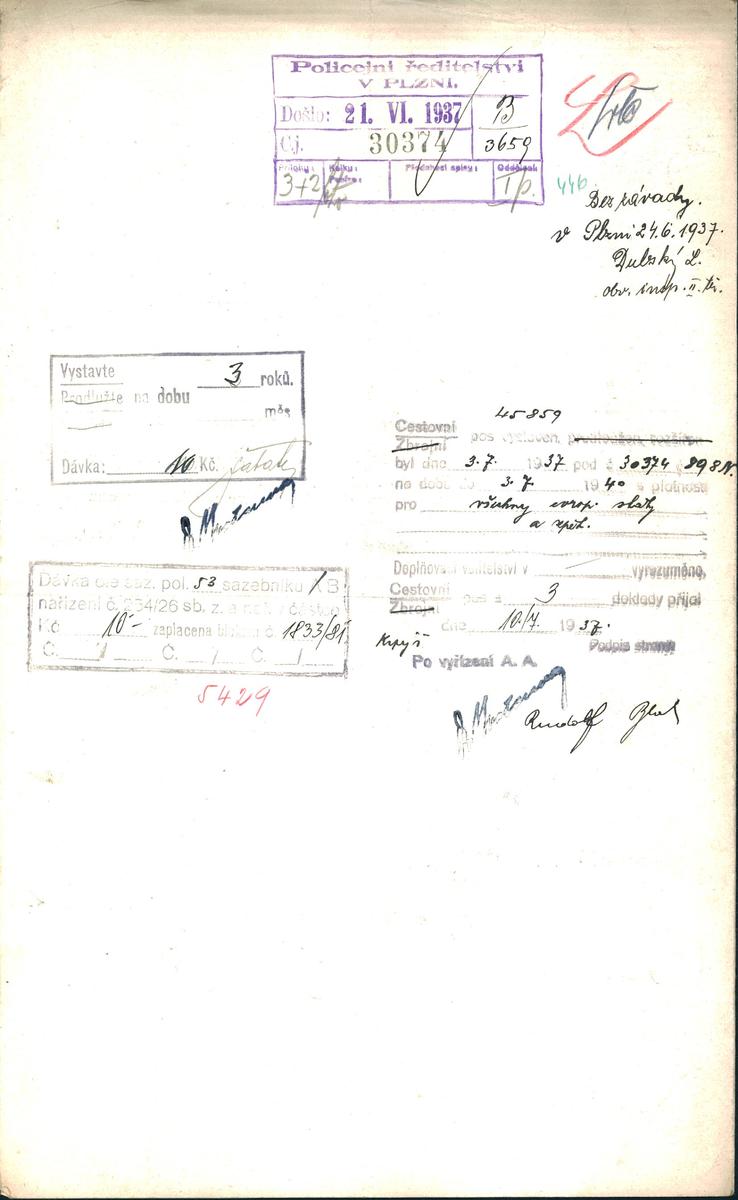 Policejní ředitelství
V PLZNI.
Došlo: 21. VI. 1937 B
Čj. 30374 3659
Přílohy: Kolky: Předchozí spisy: Oddělení
3+2
446
Bez závady.
v Plzni 24.6.1937.
Dubský L.
obv. insp. II. tř.
Vystavte
Prodlužte na dobu 3 roků.
měs
Dávka: 10 Kč.
45859
Cestovní
Zbrojní pas vystaven, prodloužen, rozšířen
byl dne 3.7. 1937 pod č 30374
na dobu do 3.7. 1940 s platností
pro všechny evrop. státy
a zpět.
Doplňovací velitelství v vyrozuměno,
Cestovní
Zbrojní pas a 3 doklady přijal
dne 10/7. 1937.
Podpis strany
Po vyřízení A. A.
Rudolf
Dávka dle saz. pol. 53 sazebníku XB
nařízení č. 254/26 sb. z. a n.
Kč 10- zaplacena blokem č. 1833/81
Č. / Č. / Č. /
5429